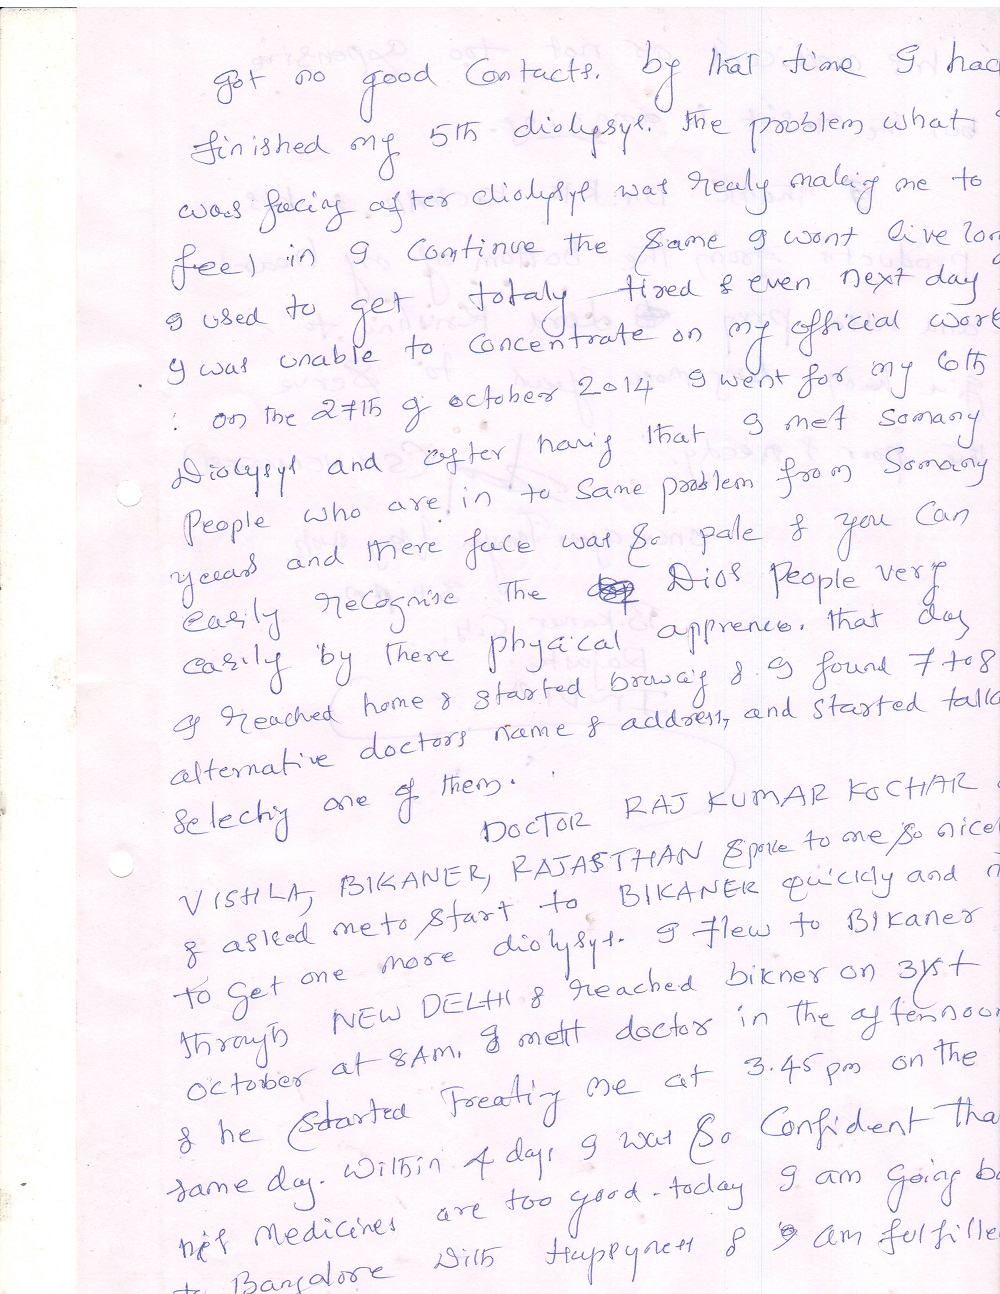 got no good Contacts. by that time I had
finished my 5th diolysys. The problem what
was facing after diolysys was realy making me to
feel in I Continue the Same I wont live lon
I used to get totaly tired & even next day
I was unable to Concentrate on my official work
: on the 27th of october 2014 I went for my 6th
Diolysys and after having that I met Somany
People who are in to Same problem from Somany
years and there face was So pale & you Can
easily recognise The Dios People very
easily by there physical apprence. That day
I reached home & started browsing & I found 7 to 8
alternative doctors name & address, and started talk
Selecting one of them.
DOCTOR RAJ KUMAR KOCHAR
VISHLA, BIKANER, RAJASTHAN Spoke to me so nicel
& asked me to start to BIKANER quickly and n
to get one more diolysys. I flew to BIKaner
through NEW DELHI & reached bikner on 31st
October at 8AM. I mett doctor in the afternoon
& he Started Treating me at 3.45 pm on the
same day. Within 4 days I was So Confident tha
his medicines are too good. today I am going ba
to Bangalore with Happyness & I am fulfille